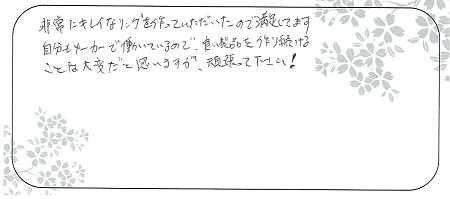 非常にキレイなリングを作っていただいたので満足してます
自分もメーカーで働いているので、良い製品を作り続ける
ことは大変だと思いますが、頑張って下さい!